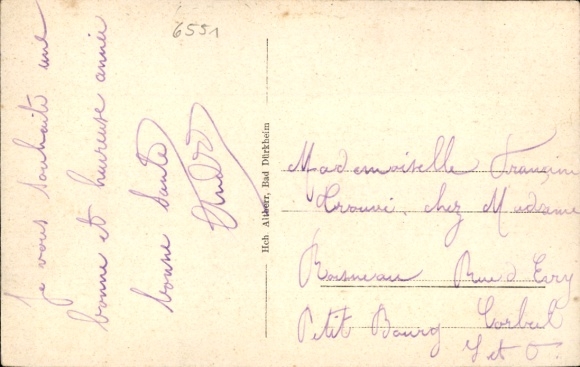 6551
Je vous souhaite une
bonne et heureuse année
bonne Santé
André
Hch Altherr, Bad Dürkheim
Mademoiselle Francine
chez Madame
Rue d'Evry
Petit Bourg Corbeil
S et O